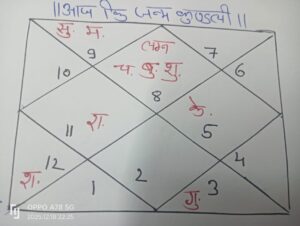 ॥आप कि जन्म कुण्डली॥
सु. म.
9
लग्न
7
10
च. बु. शु.
6
8
11
रा.
के.
5
12
4
श.
1
2
3
गु.
OPPO A78 5G
2025.12.18 22:25